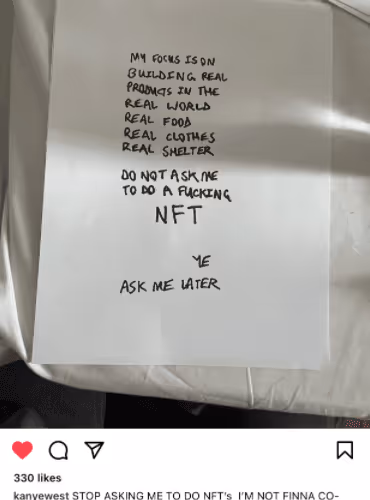 MY FOCUS IS ON
BUILDING REAL
PRODUCTS IN THE
REAL WORLD
REAL FOOD
REAL CLOTHES
REAL SHELTER
DO NOT ASK ME
TO DO A FUCKING
NFT
YE
ASK ME LATER
330 likes
kanyewest STOP ASKING ME TO DO NFT's I'M NOT FINNA CO-